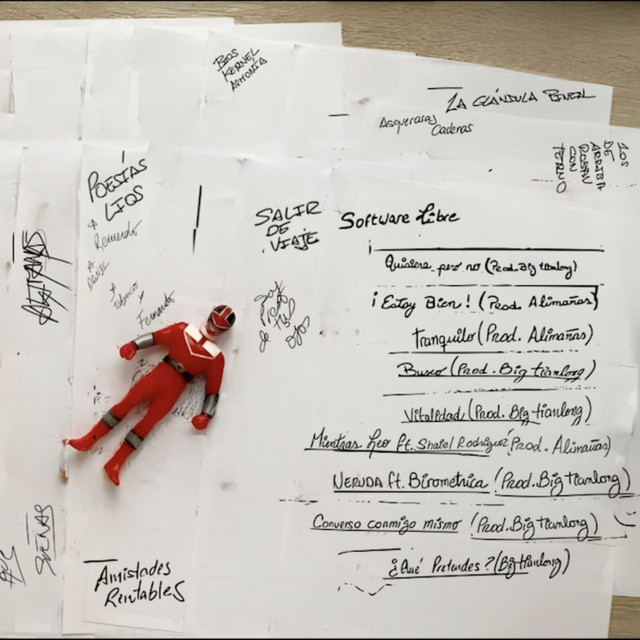 BOS
KERNEL
ANTONÍA
LA GLÁNDULA PINEAL
Asquerosas
Caderas
LOS
DE
ARRIBA
ROBAN
CON
TERNO
POESÍAS
LIOS
Recuerdo
y
Fernando
SALIR
DE
VIAJE
Soy
Preso
de tus
Ojos
Software Libre
Quisiera pero no (Prod. Big tianlong)
¡Estoy Bien! (Prod Alimañas)
tranquilo (Prod. Alimañas)
Busco (Prod. Big tianlong)
Vitalidad (Prod. Big tianlong)
Mientras Leo ft. Shatel Rodríguez (Prod. Alimañas)
NERUDA ft. Birometrica (Prod. Big Tianlong)
Converso conmigo mismo (Prod. Big Tianlong)
¿Qué Pretendes? (Big Tianlong)
SUEÑAS
Amistades
Rentables